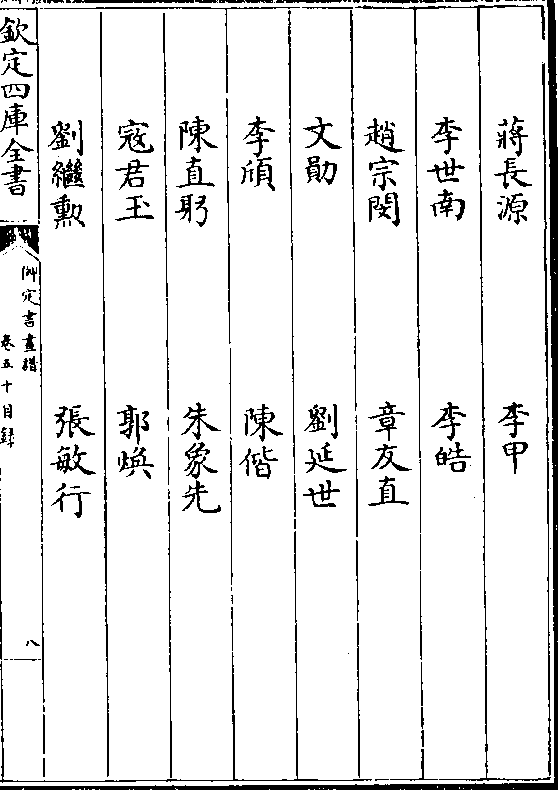 蔣長源 李甲
李世南 李皓
趙宗閔 章友直
文勛 劉延世
李頎 陳偕
陳直躬 朱象先
寇君玉 郭煥
劉繼勲 張敏行
欽定四庫全書
御定書畫譜
卷五十目録
八